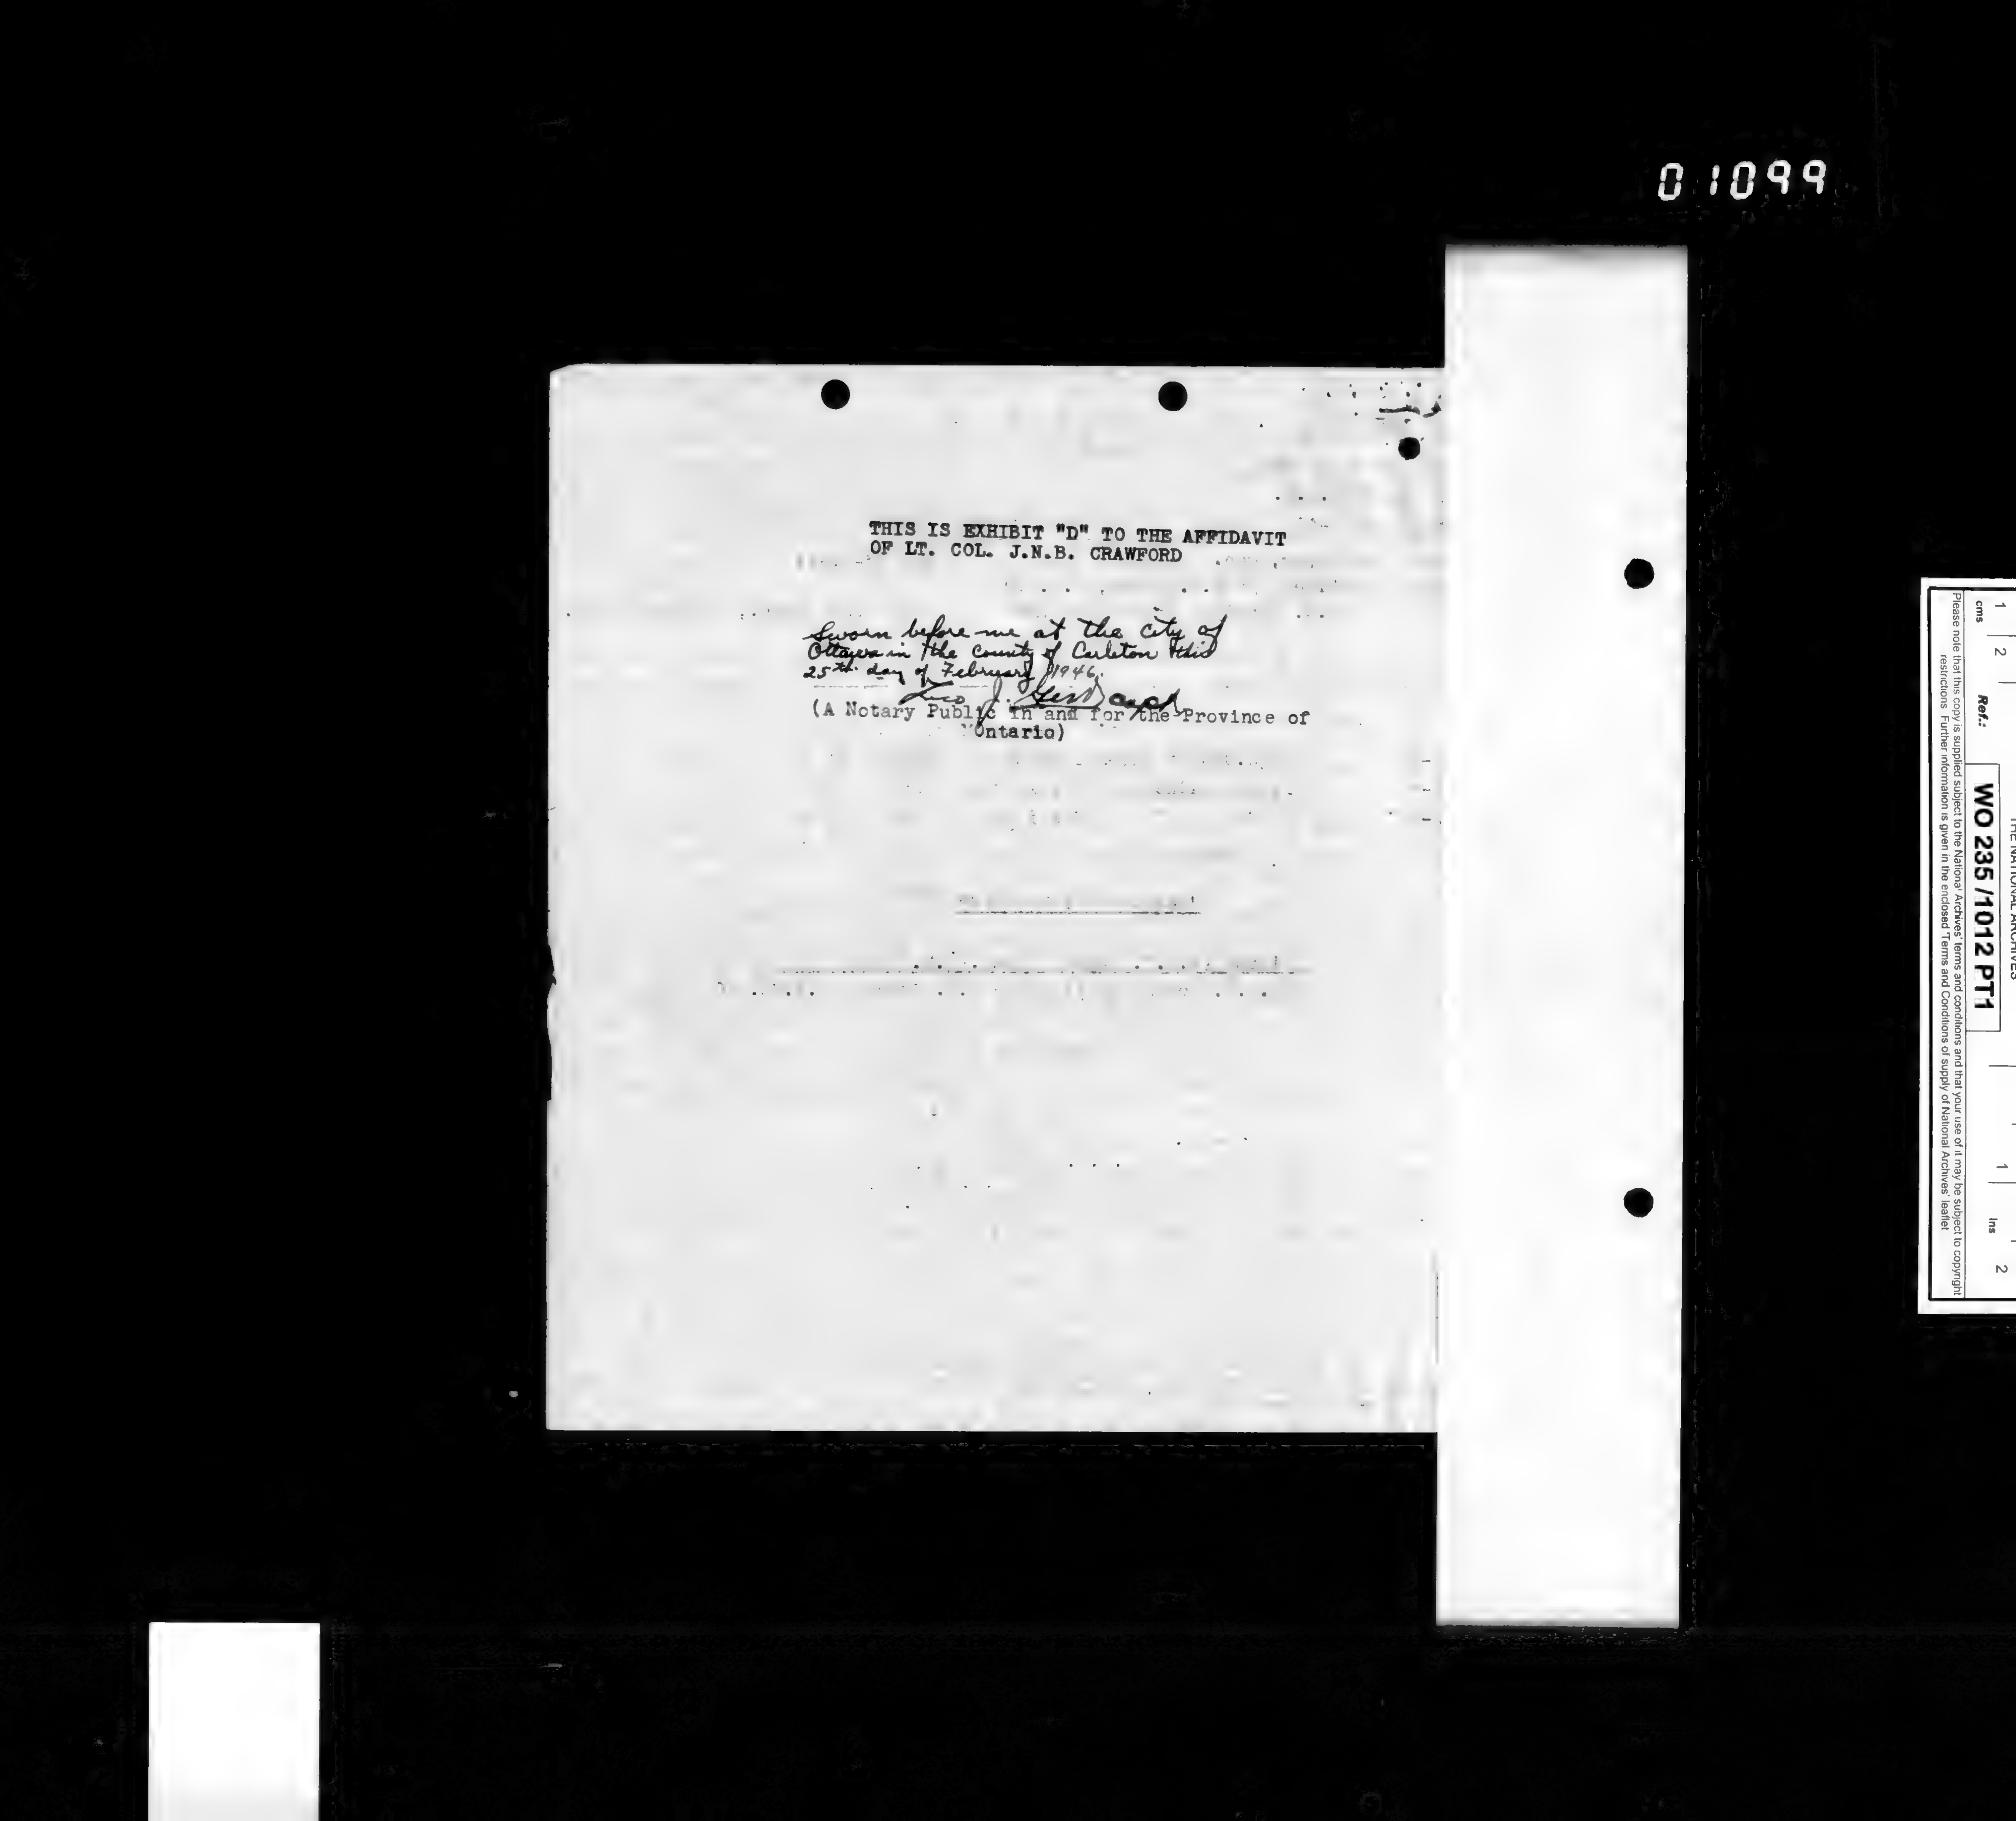 01099
THIS IS EXHIBIT "D" TO THE AFFIDAVIT
OF LT. COL. J.N.B. CRAWFORD
Sworn before me at the city of
Ottawa in the County of Carleton this
25th day of February 1946.
(A Notary Public in and for the Province of
Ontario)
THE NATIONAL ARCHIVES
1 2 1 2
cms Ref.: WO 235 /1012 PT1 ins
Please note that this copy is supplied subject to the National Archives' terms and conditions and that your use of it may be subject to copyright
restrictions. Further information is given in the enclosed 'Terms and Conditions of supply of National Archives' leaflet